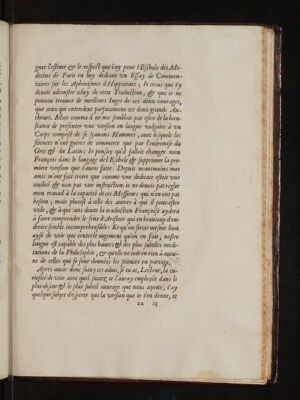 gner l'estime & le respect que i'ay pour l'Eschole des Me-
decins de Paris en luy dediant vn Essay de Commen-
taires sur les Aphorismes d'Hippocrate; Ie creus que i'y
deuois adiouster celuy de cette Traduction, & que ie ne
pouuois trouuer de meilleurs Iuges de ces deux ouurages,
que ceux qui entendent parfaitement ces deux grands Au-
theurs. Mais comme il ne me sembloit pas estre de la bien-
seance de presenter vne version en langue vulgaire à vn
Corps composé de si sçauans Hommes, auec lesquels les
sciences n'ont guères de commerce que par l'entremise du
Grec & du Latin; Ie pensay qu'il falloit changer mon
François dans le langage de l'Eschole & supprimer la pre-
miere version que i'auois faite. Depuis neantmoins mes
amis m'ont fait croire que comme vne dedicace estoit vne
ciuilité & non pas vne instruction, ie ne deuois pas regler
mon trauail à la capacité de ces Messieurs qui n'en ont pas
besoin; mais plustost à celle des autres à qui il peut estre
vtile, & à qui sans doute la traduction Françoise aydera
à faire comprendre le sens d'Aristote qui en beaucoup d'en-
droits semble incomprehensible: Et qu'on seroit par là
aysé de voir que contre le iugement qu'on en fait, nostre
langue est capable des plus hautes & des plus subtiles medi-
tations de la Philosophie, & qu'elle ne cede en rien à aucu-
ne de celles qui se sont données les sciences en partage.
Apres auoir donc suiuy ces aduis, si tu as, Lecteur, la cu-
riosité de voir auec quel succez ie l'auray employée dans le
plus obscur & le plus subtil ouurage que nous ayons, i'ay
quelque subjet d'esperer que la version que ie t'en donne, te
ãã iij